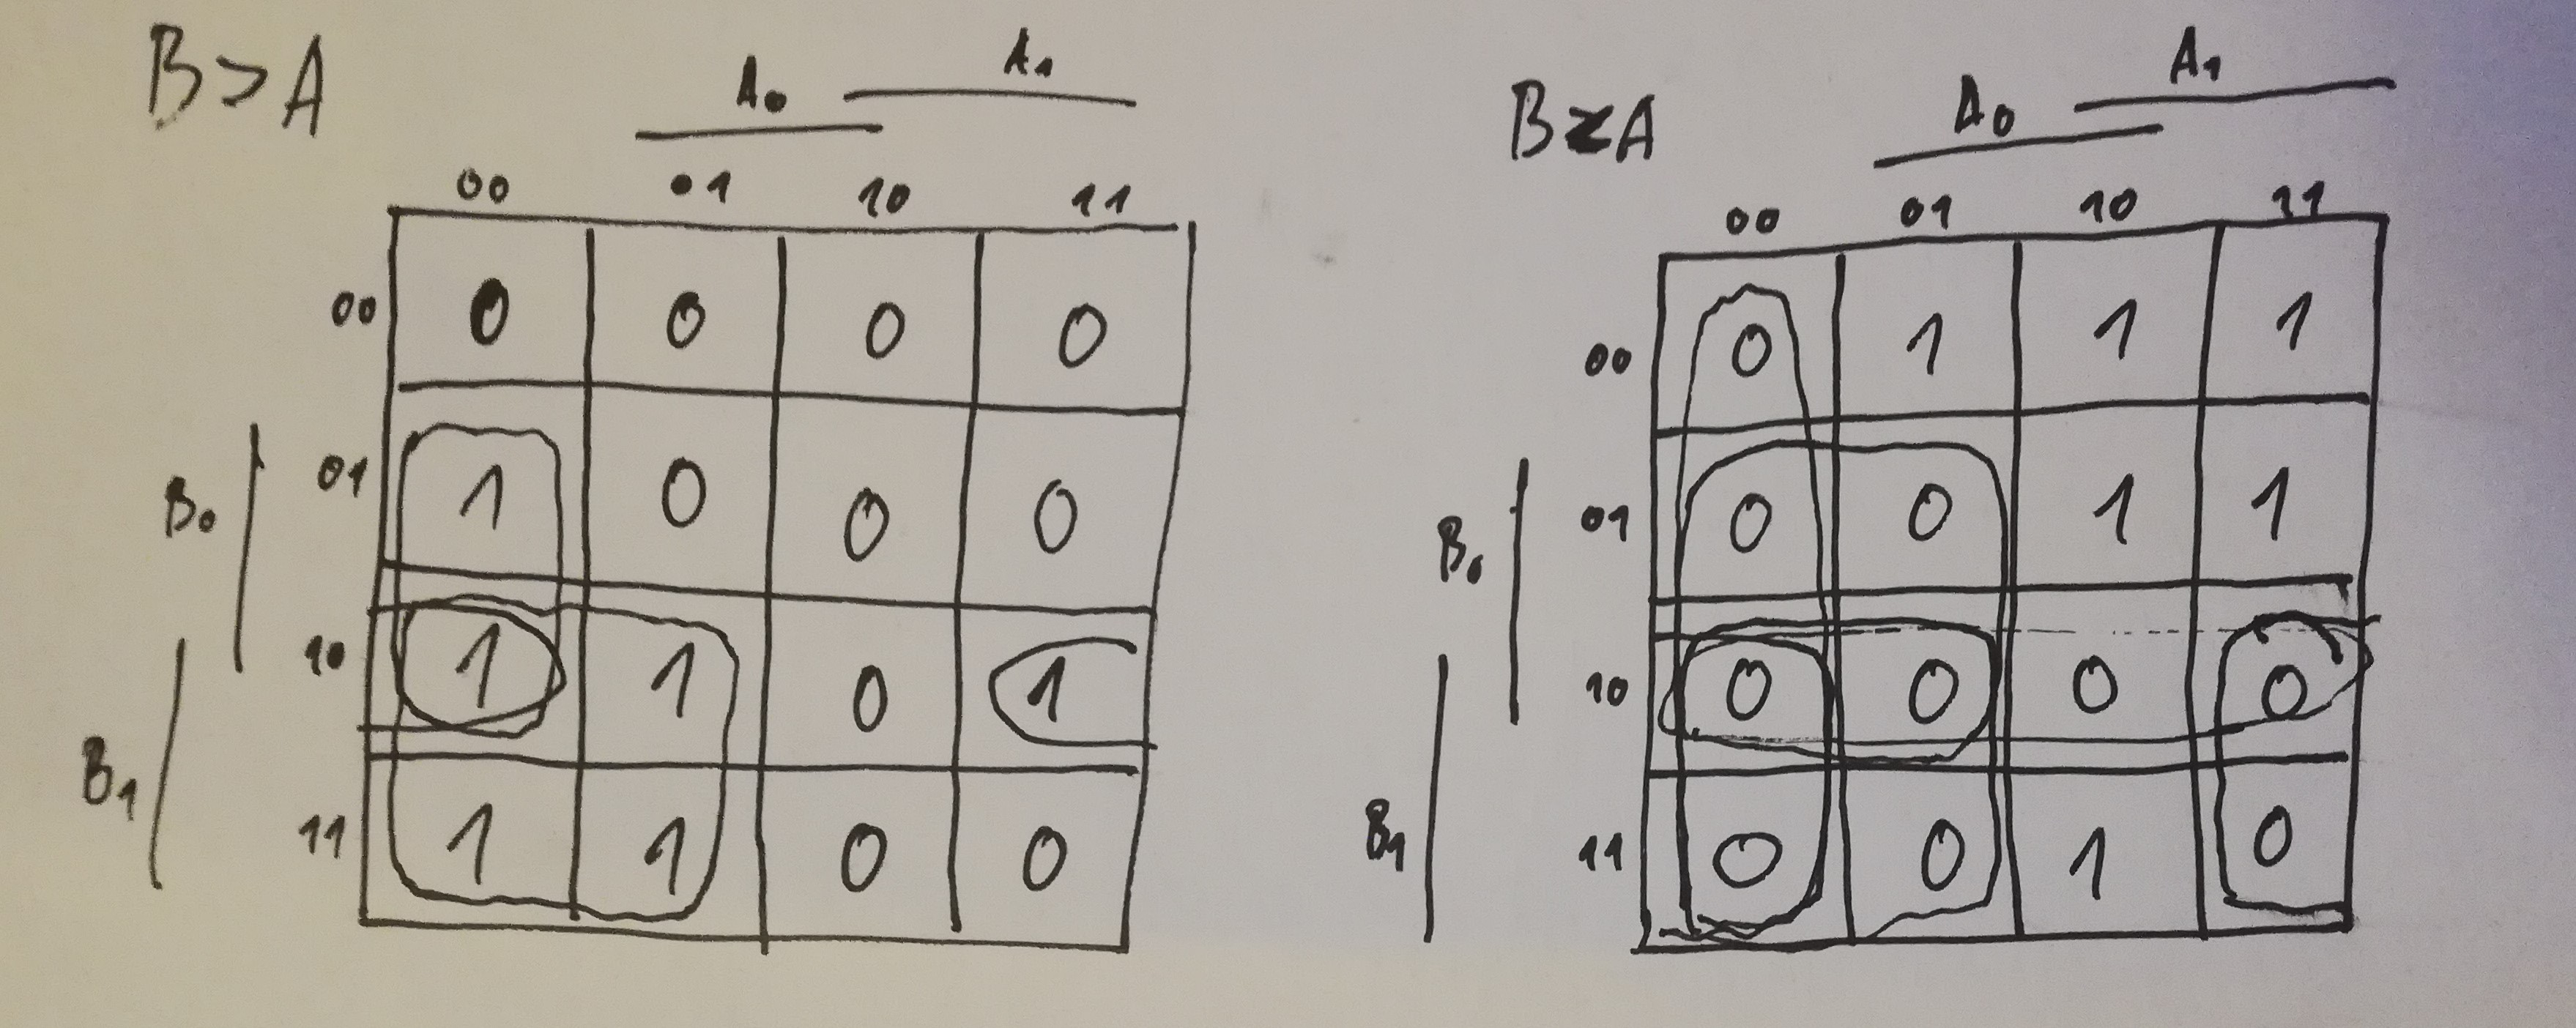 B>A
A₀ A₁
00 01 10 11
00 0 0 0 0
B₀ 01 1 0 0 0
10 1 1 0 1
B₁ 11 1 1 0 0
B<A
A₀ A₁
00 01 10 11
00 0 1 1 1
B₀ 01 0 0 1 1
10 0 0 0 0
B₁ 11 0 0 1 0